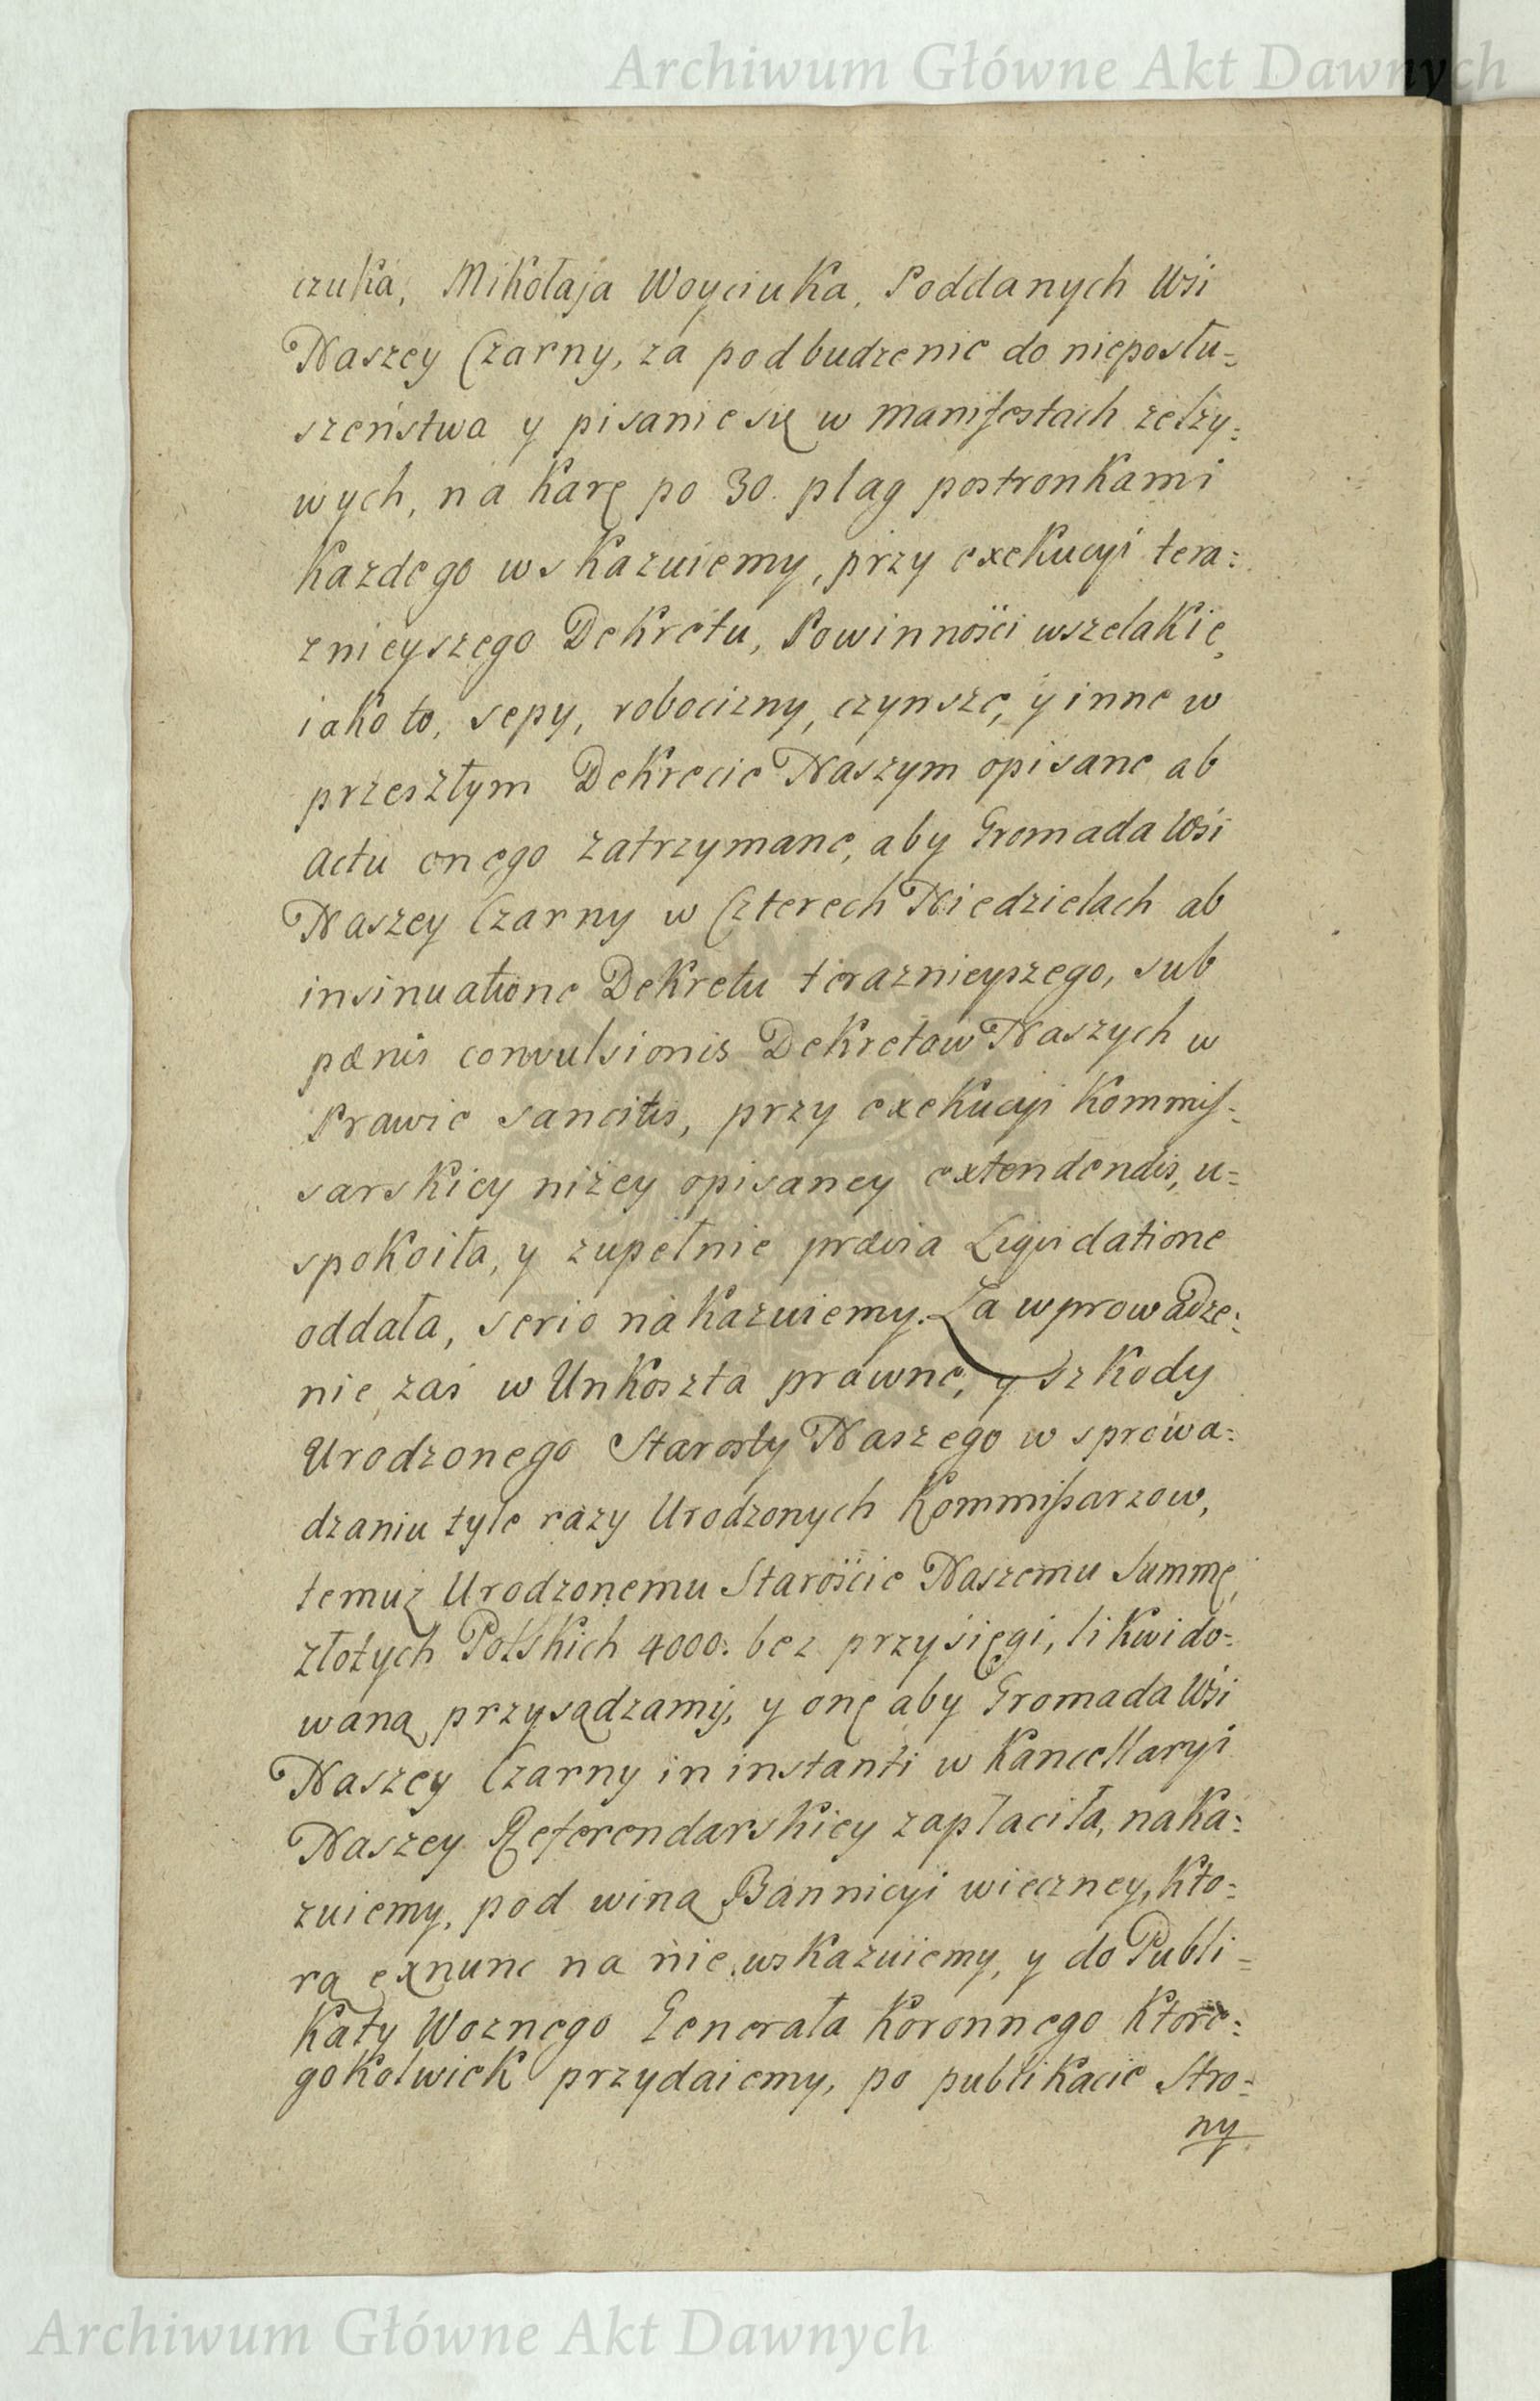 Archiwum Główne Akt Dawnych
czuka, Mikołaja Woyciuka, Poddanych Wsi
Naszey Czarny, za podbudzenie do nieposłu=
szeństwa y pisanie się w manifestach zelży=
wych, na karę po 30. plag postronkami
każdego wskazuiemy, przy exekucyi tera=
znieyszego Dekretu, Powinności wszelakie,
iako to, sepy, robocizny, czynsze, y inne w
przeszłym Dekrecie Naszym opisane ab
actu onego zatrzymane, aby Gromada Wsi
Naszey Czarny w Czterech Niedzielach ab
insinuatione Dekretu teraznieyszego, sub
pænis convulsionis Dekretow Naszych w
Prawie sancitis, przy exekucyi Kommis=
sarskiey niżey opisaney extendendis, u=
spokoiła, y zupełnie prævia Liquidatione
oddała, serio nakazuiemy. Za wprowadze=
nie zaś w Unkoszta prawne, y szkody
Urodzonego Starosty Naszego w sprowa=
dzaniu tyle razy Urodzonych Kommissarzow,
temuż Urodzonemu Staroście Naszemu Summę
złotych Polskich 4000. bez przysięgi, likwido=
waną przysądzamy, y onę aby Gromada Wsi
Naszey Czarny in instanti w Kancellaryi
Naszey Referendarskiey zapłaciła, naka=
zuiemy, pod winą Bannicyi wieczney, kto=
rą exnunc na nie wskazuiemy, y do Publi=
katy Woznego Generała Koronnego ktore=
gokolwiek przydaiemy, po publikacie Stro=
ny
Archiwum Główne Akt Dawnych